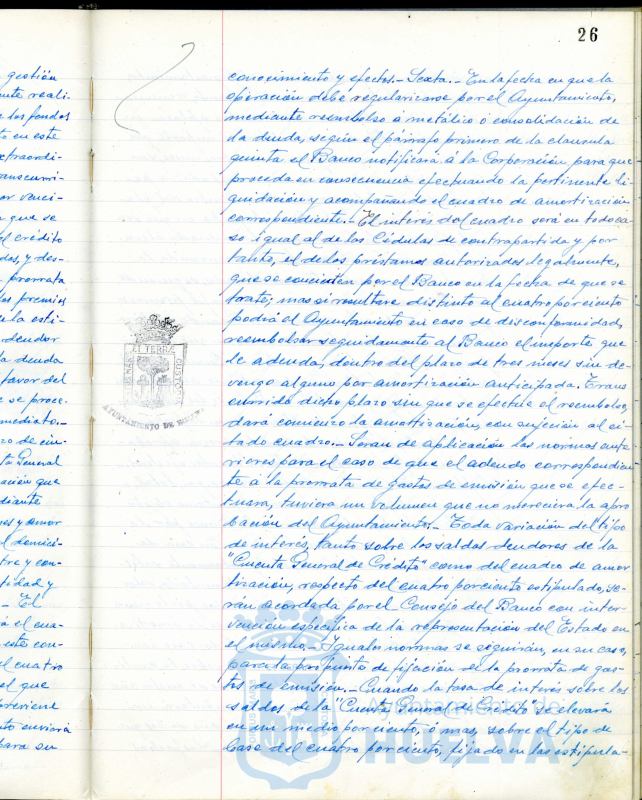 26
gestión
conocimiento y efectos.- Sexta.- En la fecha en que la
operación debe regularizarse por el Ayuntamiento,
mediante reembolso a metálico ó consolidación de
la deuda, según el párrafo primero de la clausula
quinta el Banco notificará á la Corporación para que
proceda en consecuencia efectuando la pertinente li-
quidación y acompañando el cuadro de amortización
correspondiente.- El interés del cuadro será en todo ca-
so igual al de las Cédulas de contrapartida y por
tanto, el de los préstamos autorizados legalmente,
que se concierten por el Banco en la fecha de que se
trate; mas si resultare distinto al cuatro por ciento
podrá el Ayuntamiento en caso de disconformidad,
reembolsar seguidamente al Banco el importe que
le adeuda, dentro del plazo de tres meses sin de-
vengo alguno por amortización anticipada. Trans
currido dicho plazo sin que se efectue el reembolso,
dará comienzo la amortización, con sujeción al ci-
tado cuadro.- Seran de aplicación las normas ante-
riores para el caso de que el adeudo correspondien-
te á la prorrata de gastos de emisión que se efec-
tuara, tuviera un volumen que no mereciera la apro
bación del Ayuntamiento.- Toda variación del tipo
de interés, tanto sobre los saldos deudores de la
"Cuenta General de Crédito" como del cuadro de amor
tización, respecto del cuatro por ciento estipulado, se-
rán acordada por el Consejo del Banco con inter-
vención especifica de la representación del Estado en
el mismo.- Iguales normas se seguirán, en su caso,
para la propuesta de fijación de la prorrata de gas-
tos de emisión.- Cuando la tasa de interés sobre los
saldos de la "Cuenta General de Crédito" se elevará
en un medio por ciento, ó mas, sobre el tipo de
base del cuatro por ciento, fijado en las estipula-
AYUNTAMIENTO DE HUELVA
Ayuntamiento de
HUELVA